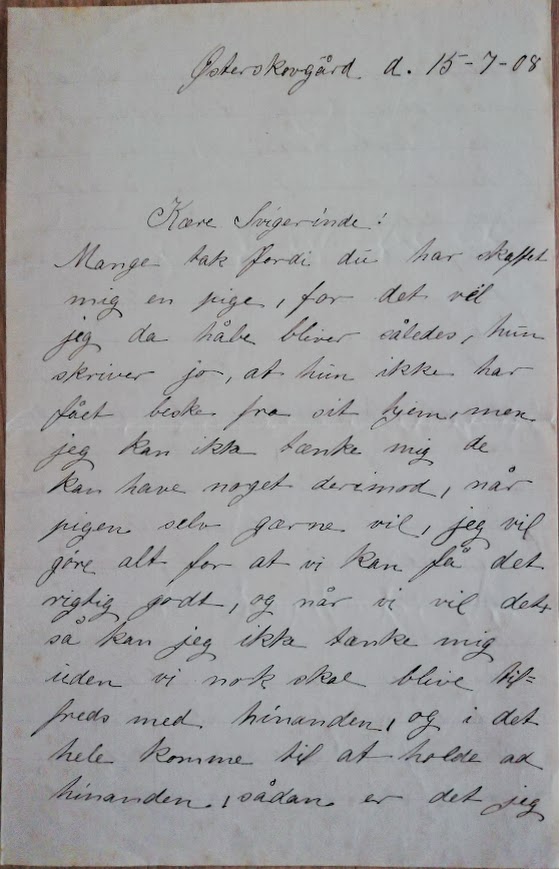 Østerskovgård d. 15-7-08
Kære Svigerinde!
Mange tak fordi du har skaffet
mig en pige, for det vil
jeg da håbe bliver således, hun
skriver jo, at hun ikke har
fået beske fra sit hjem, men
jeg kan ikke tænke mig de
kan have noget derimod, når
pigen selv gærne vil, jeg vil
göre alt for at vi kan få det
rigtig godt, og når vi vil det,
så kan jeg ikke tænke mig
uden vi nok skal blive til=
freds med hinanden, og i det
hele komme til at holde ad
hinanden, sådan er det jeg